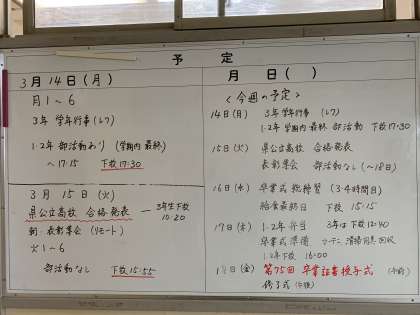 予 定
3月14日(月)
月1~6
3年 学年行事(レク)
1・2年 部活動あり (学期内 最終)
~17:15 下校17:30
3月 15日 (火)
県公立高校 合格発表 ― 3年生下校 10:20
朝・表彰集会 (リモート)
火1~6
部活動なし 下校15:55
月 日( )
<今週の予定>
14日(月) 3年 学年行事(レク)
1・2年 学期内最終 部活動 下校17:30
15日(火) 県公立高校 合格発表
表彰集会 部活動なし (~18日)
16日(水) 卒業式総練習 (3・4時間目)
給食最終日 下校 15:15
17日(木) 1・2年 弁当 3年は下校12:40
卒業式 準備 ワーデン 清掃用具回収
1・2年下校 16:00
18日(金) 第75回 卒業証書授与式 (午前)
修了式(午後)